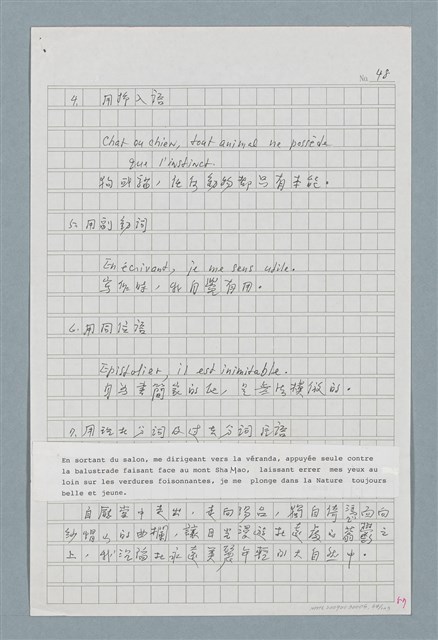 No. 48
4. 用插入語
Chat ou chien, tout animal ne possède
que l'instinct.
狗或貓，任何動物都只有本能。
5. 用副動詞
En écrivant, je me sens utile.
寫作時，我自覺有用。
6. 用同位語
Epistolier, il est inimitable.
身為書簡家的他，是無法模倣的。
7. 用現在分詞及過去分詞片語
En sortant du salon, me dirigeant vers la véranda, appuyée seule contre
la balustrade faisant face au mont Sha Mao, laissant errer mes yeux au
loin sur les verdures foisonnantes, je me plonge dans la Nature toujours
belle et jeune.
自廳堂中走出，走向陽台，獨自倚靠面向
紗帽山的曲欄，讓目光漫遊在遠處的蓊鬱之
上，我沉陷在永遠美麗年輕的大自然中。